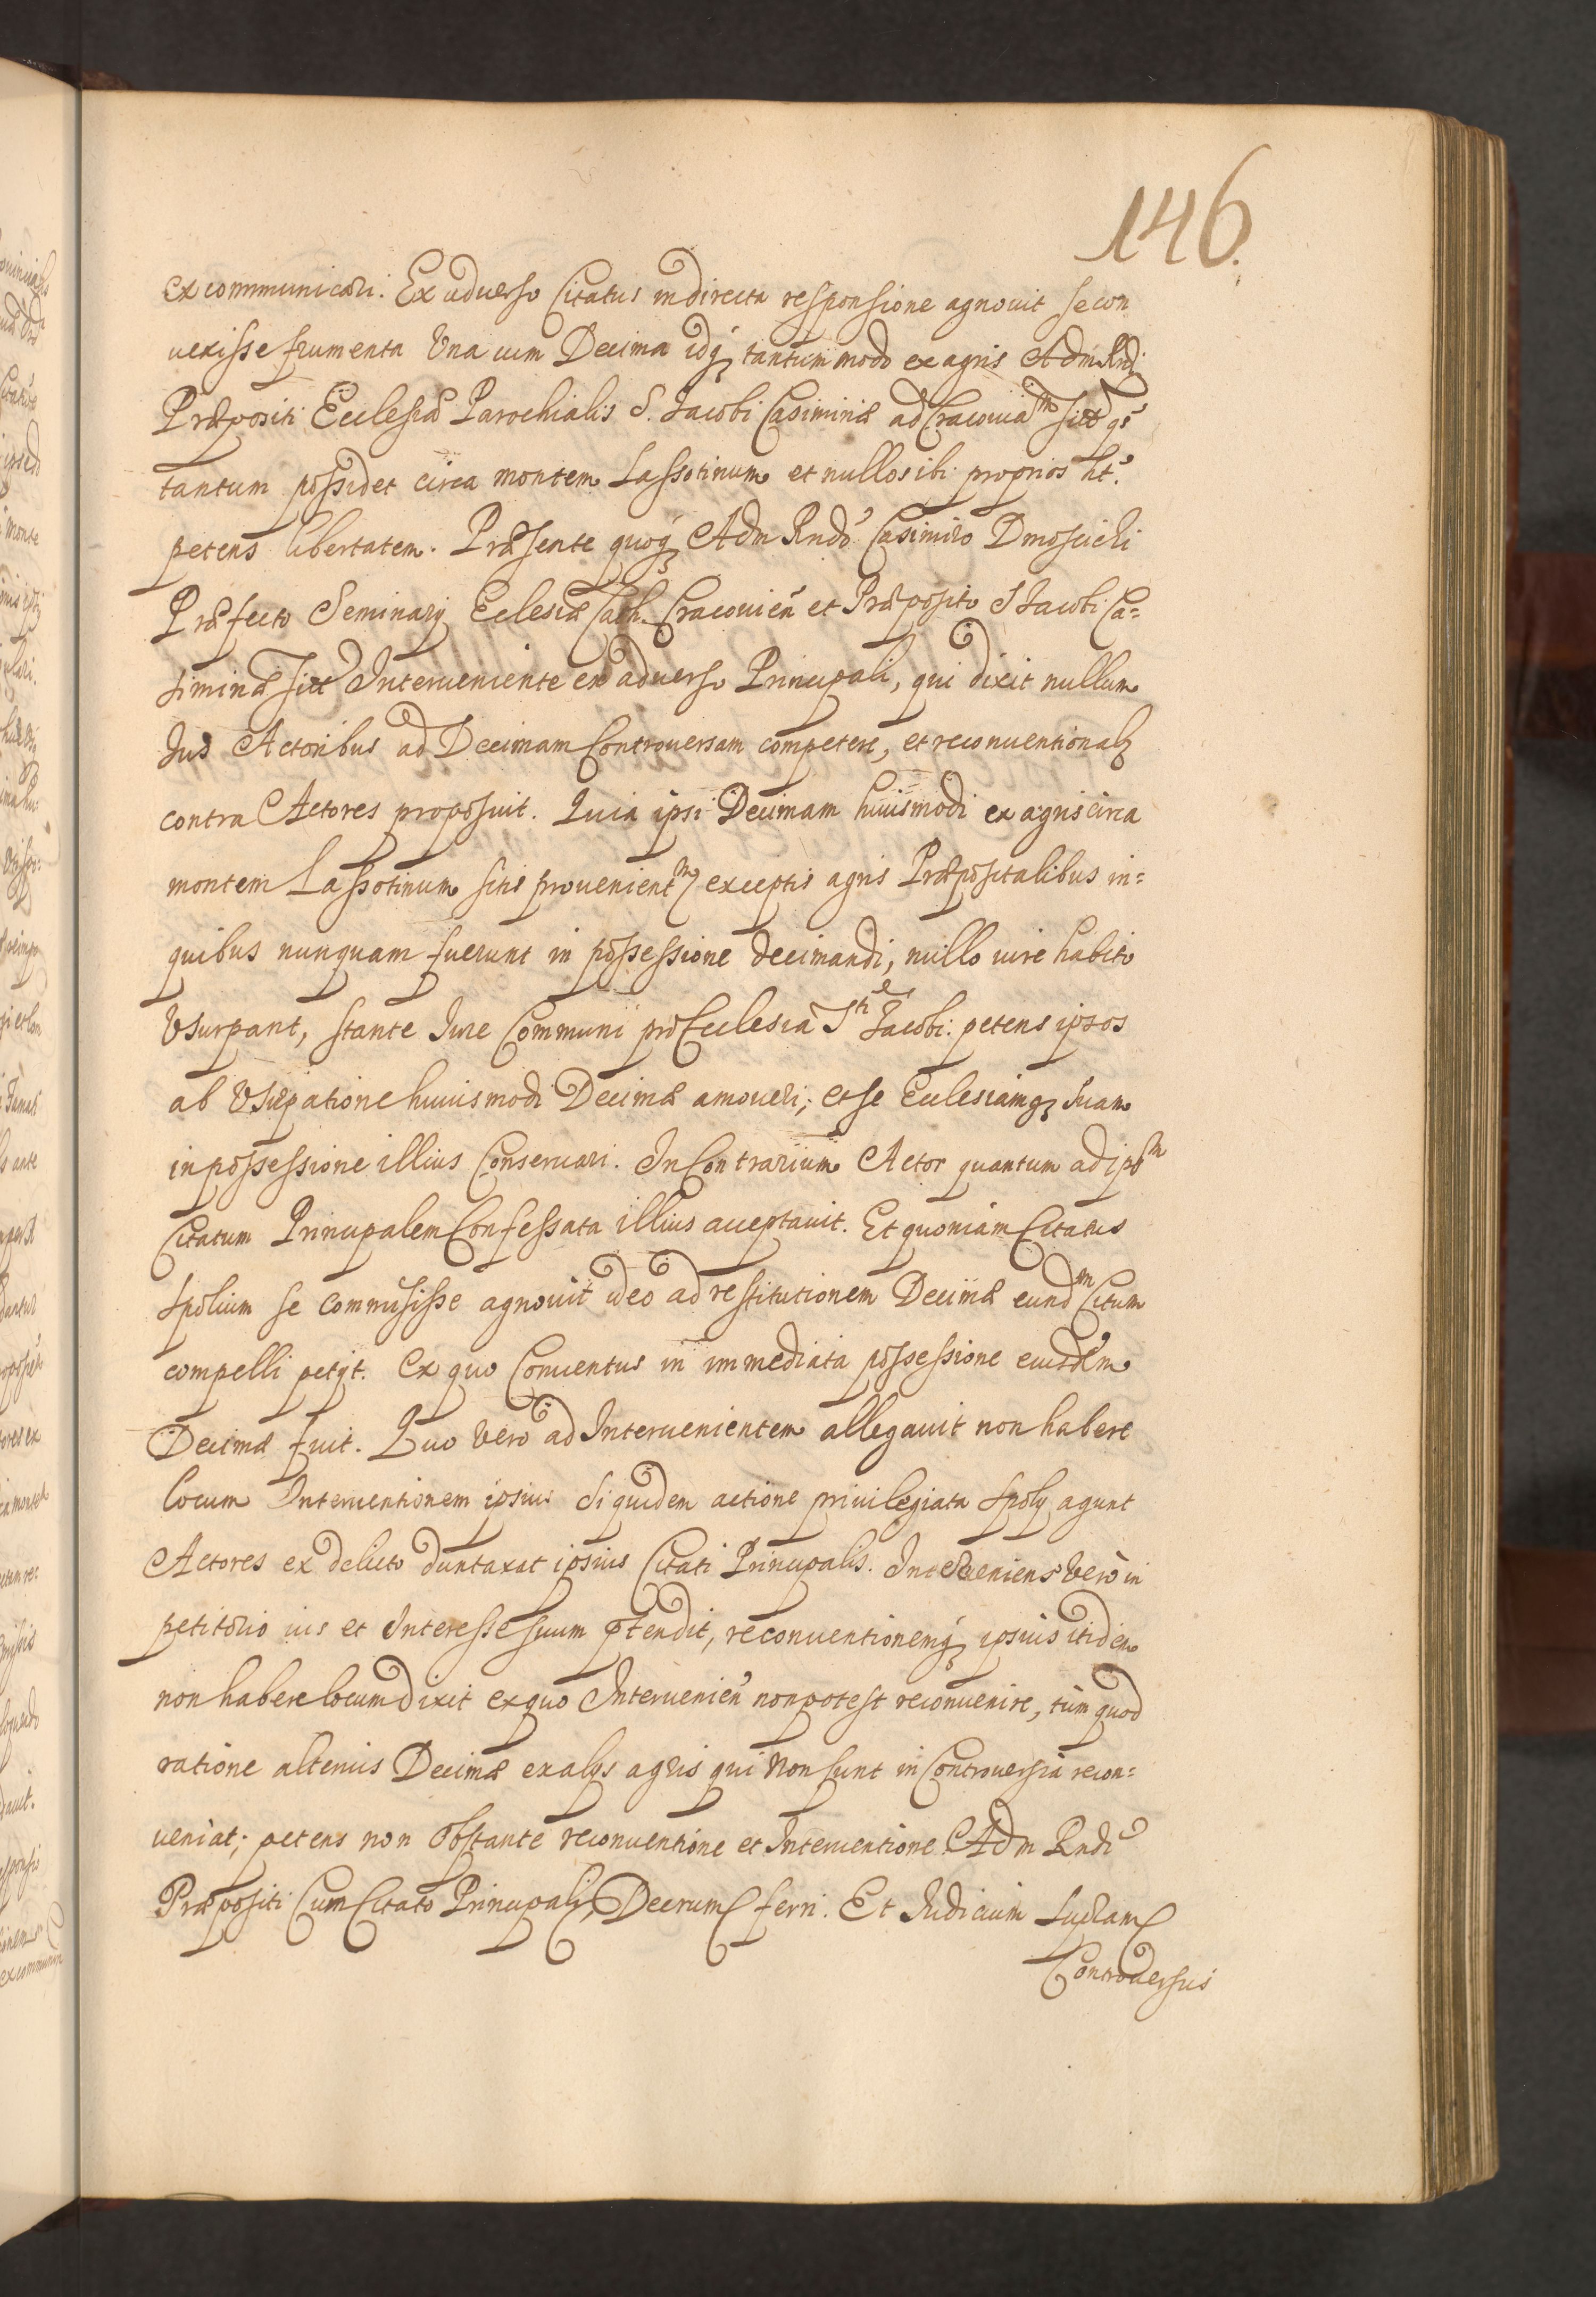 146.
excommunicari. Ex aduerso Citatus in directa responsione agnouit se con
uexisse frumenta Vna cum Decima idq; tantummodo ex agris Adm Rndi
Præpositi Ecclesiæ Parochialis S. Iacobi Casimiriæ ad Cracouiam sitæ qs
tantum possidet circa montem Lassotinum et nullos ibi proprios ht.
petens libertatem. Præsente quoq; Adm Rndo Casimiro Dmosicki
Præfecto Seminarij Eclesiæ Cath. Cracouien et Præposito S Iacobi Ca=
simiriæ sitæ Interueniente ex aduerso Principali, qui dixit nullum
Ius Actoribus ad Decimam Controuersam competere, et reconuentionalr
contra Actores proposuit. Quia ipsi Decimam huiusmodi ex agris circa
montem Lassotinum sitis prouenientem exceptis agris Præpositalibus in=
quibus nunquam fuerunt in possessione decimandi, nullo iure habito
Vsurpant, stante Iure Communi pro Ecclesia Sti Iacobi: petens ipsos
ab Vsurpatione huiusmodi Decimæ amoueri; et se Ecclesiamq; suam
in possessione illius Conseruari. In Contrarium Actor quantum ad ipsm
Citatum Principalem Confessata illius acceptauit. Et quoniam Citatus
spolium se commisisse agnouit ideo ad restitutionem Decimæ eundm Citum
compelli petijt. Ex quo Conuentus in immediata possessione eiusdem
Decimæ fuit. Quo vero ad Interuenientem allegauit non habere
locum Interuentionem ipsius siquidem actione priuilegiata spolij agunt
Actores ex delicto duntaxat ipsius Citati Principalis. Interueniens vero in
petitorio ius et Interesse suum prtendit, reconuentionemq; ipsius itidem
non habere locum dixit ex quo Interuenien non potest reconuenire, tum quod
ratione alterius Decimæ ex alijs agris qui non sunt in Controuersia recon=
ueniat; petens non obstante reconuentione et Interuentione Adm Rndi
Præpositi Cum Citato Principali, Decrum ferri. Et Iudicium supram
Controuersus